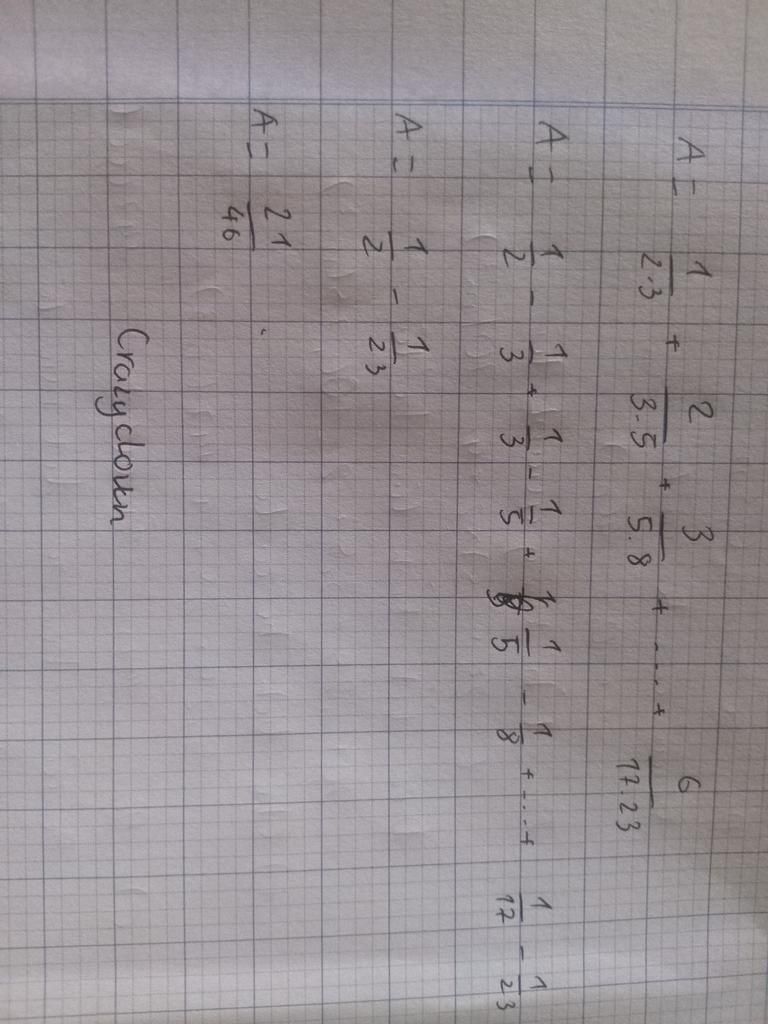 A = 1/2.3 + 2/3.5 + 3/5.8 + ....+ 6/17.23
A = 1/2 - 1/3 + 1/3 - 1/5 + 1/5 - 1/8 + ....+ 1/17 - 1/23
A = 1/2 - 1/23
A = 21/46 .
Crazyclown